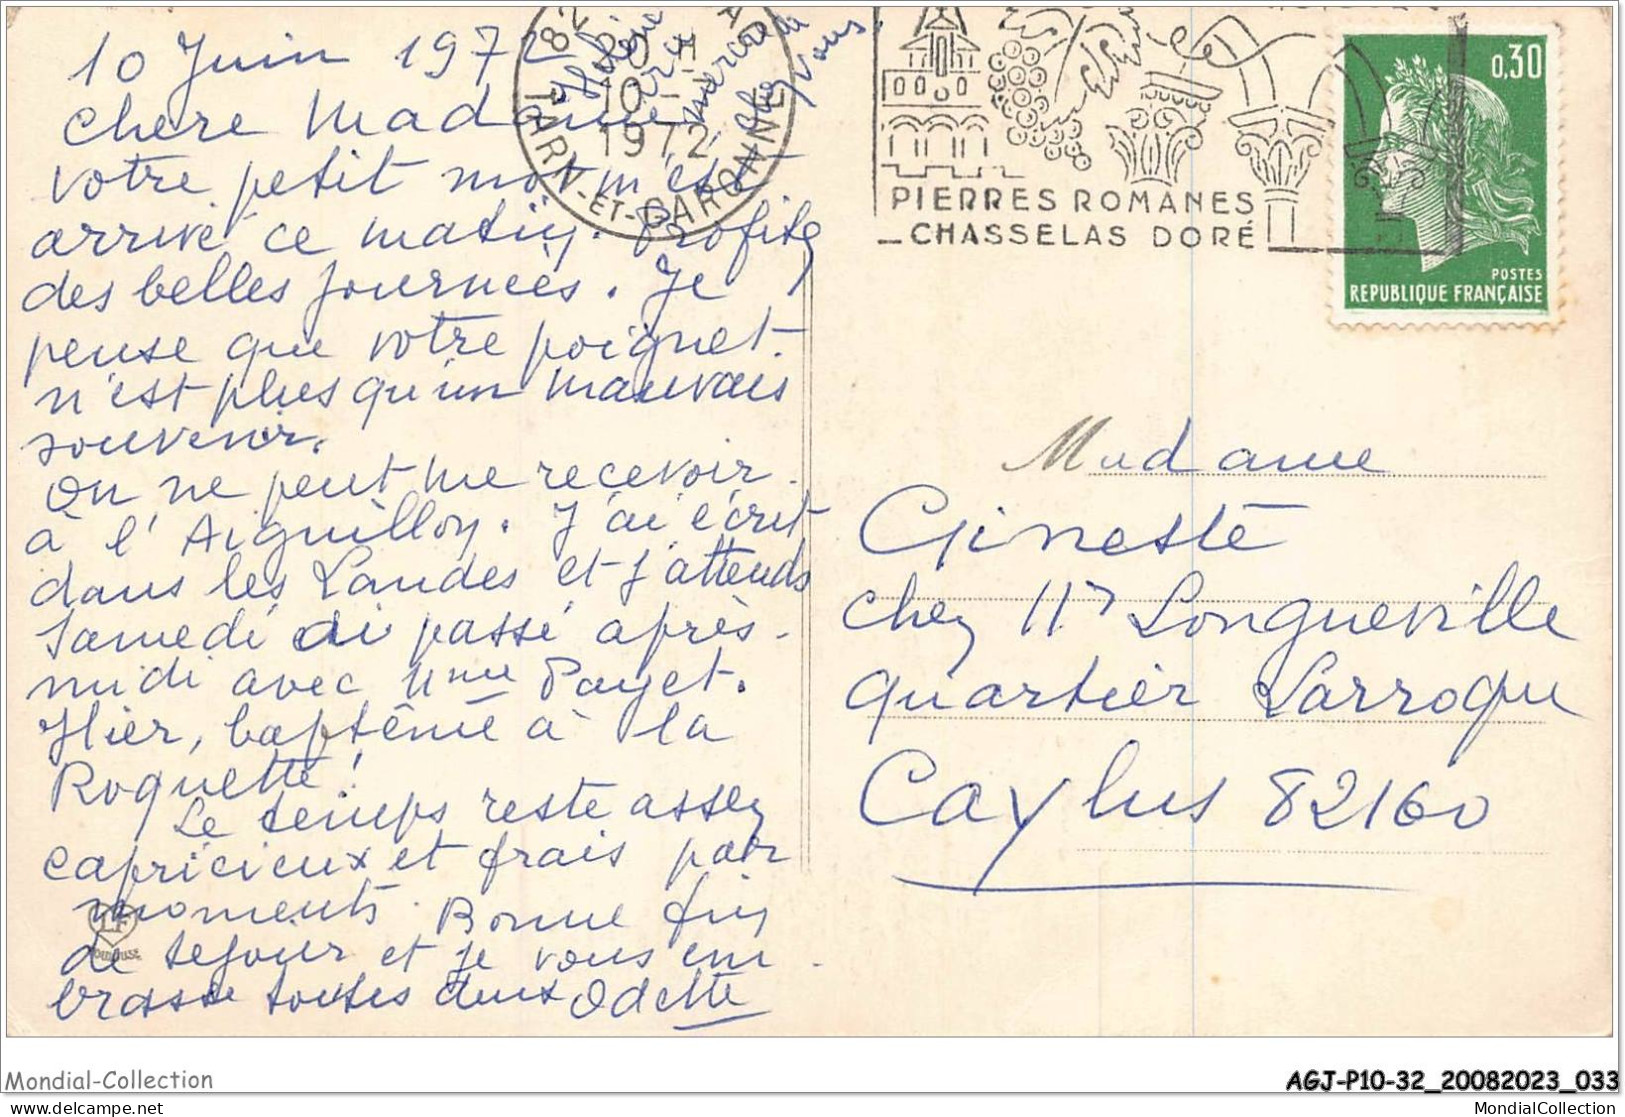 10 Juin 1972
Chere Madame
votre petit mot m'est
arrivé ce matin. Profitez
des belles journées. Je
pense que votre poignet
n'est plus qu'un mauvais
souvenir.
On ne peut me recevoir
à l'Aiguillon. J'ai écrit
dans les Landes et j'attends
Samedi ai passé après-
midi avec Mme Payet.
Hier, baptême à la
Roquette!
Le temps reste assez
capricieux et frais par
moments. Bonne fin
de sejour et je vous em-
brasse toutes deux Odette
Hélène
mercredi
chez vous
82
20 H
10 -
1972
TARN-ET-GARONNE
PIERRES ROMANES
CHASSELAS DORÉ
0,30
POSTES
REPUBLIQUE FRANÇAISE
Madame
Ginesté
chez Mr Longueville
quartier Larroque
Caylus 82160
LF
Toulouse
Mondial-Collection
AGJ-P10-32_20082023_033
delcampe.net
MondialCollection